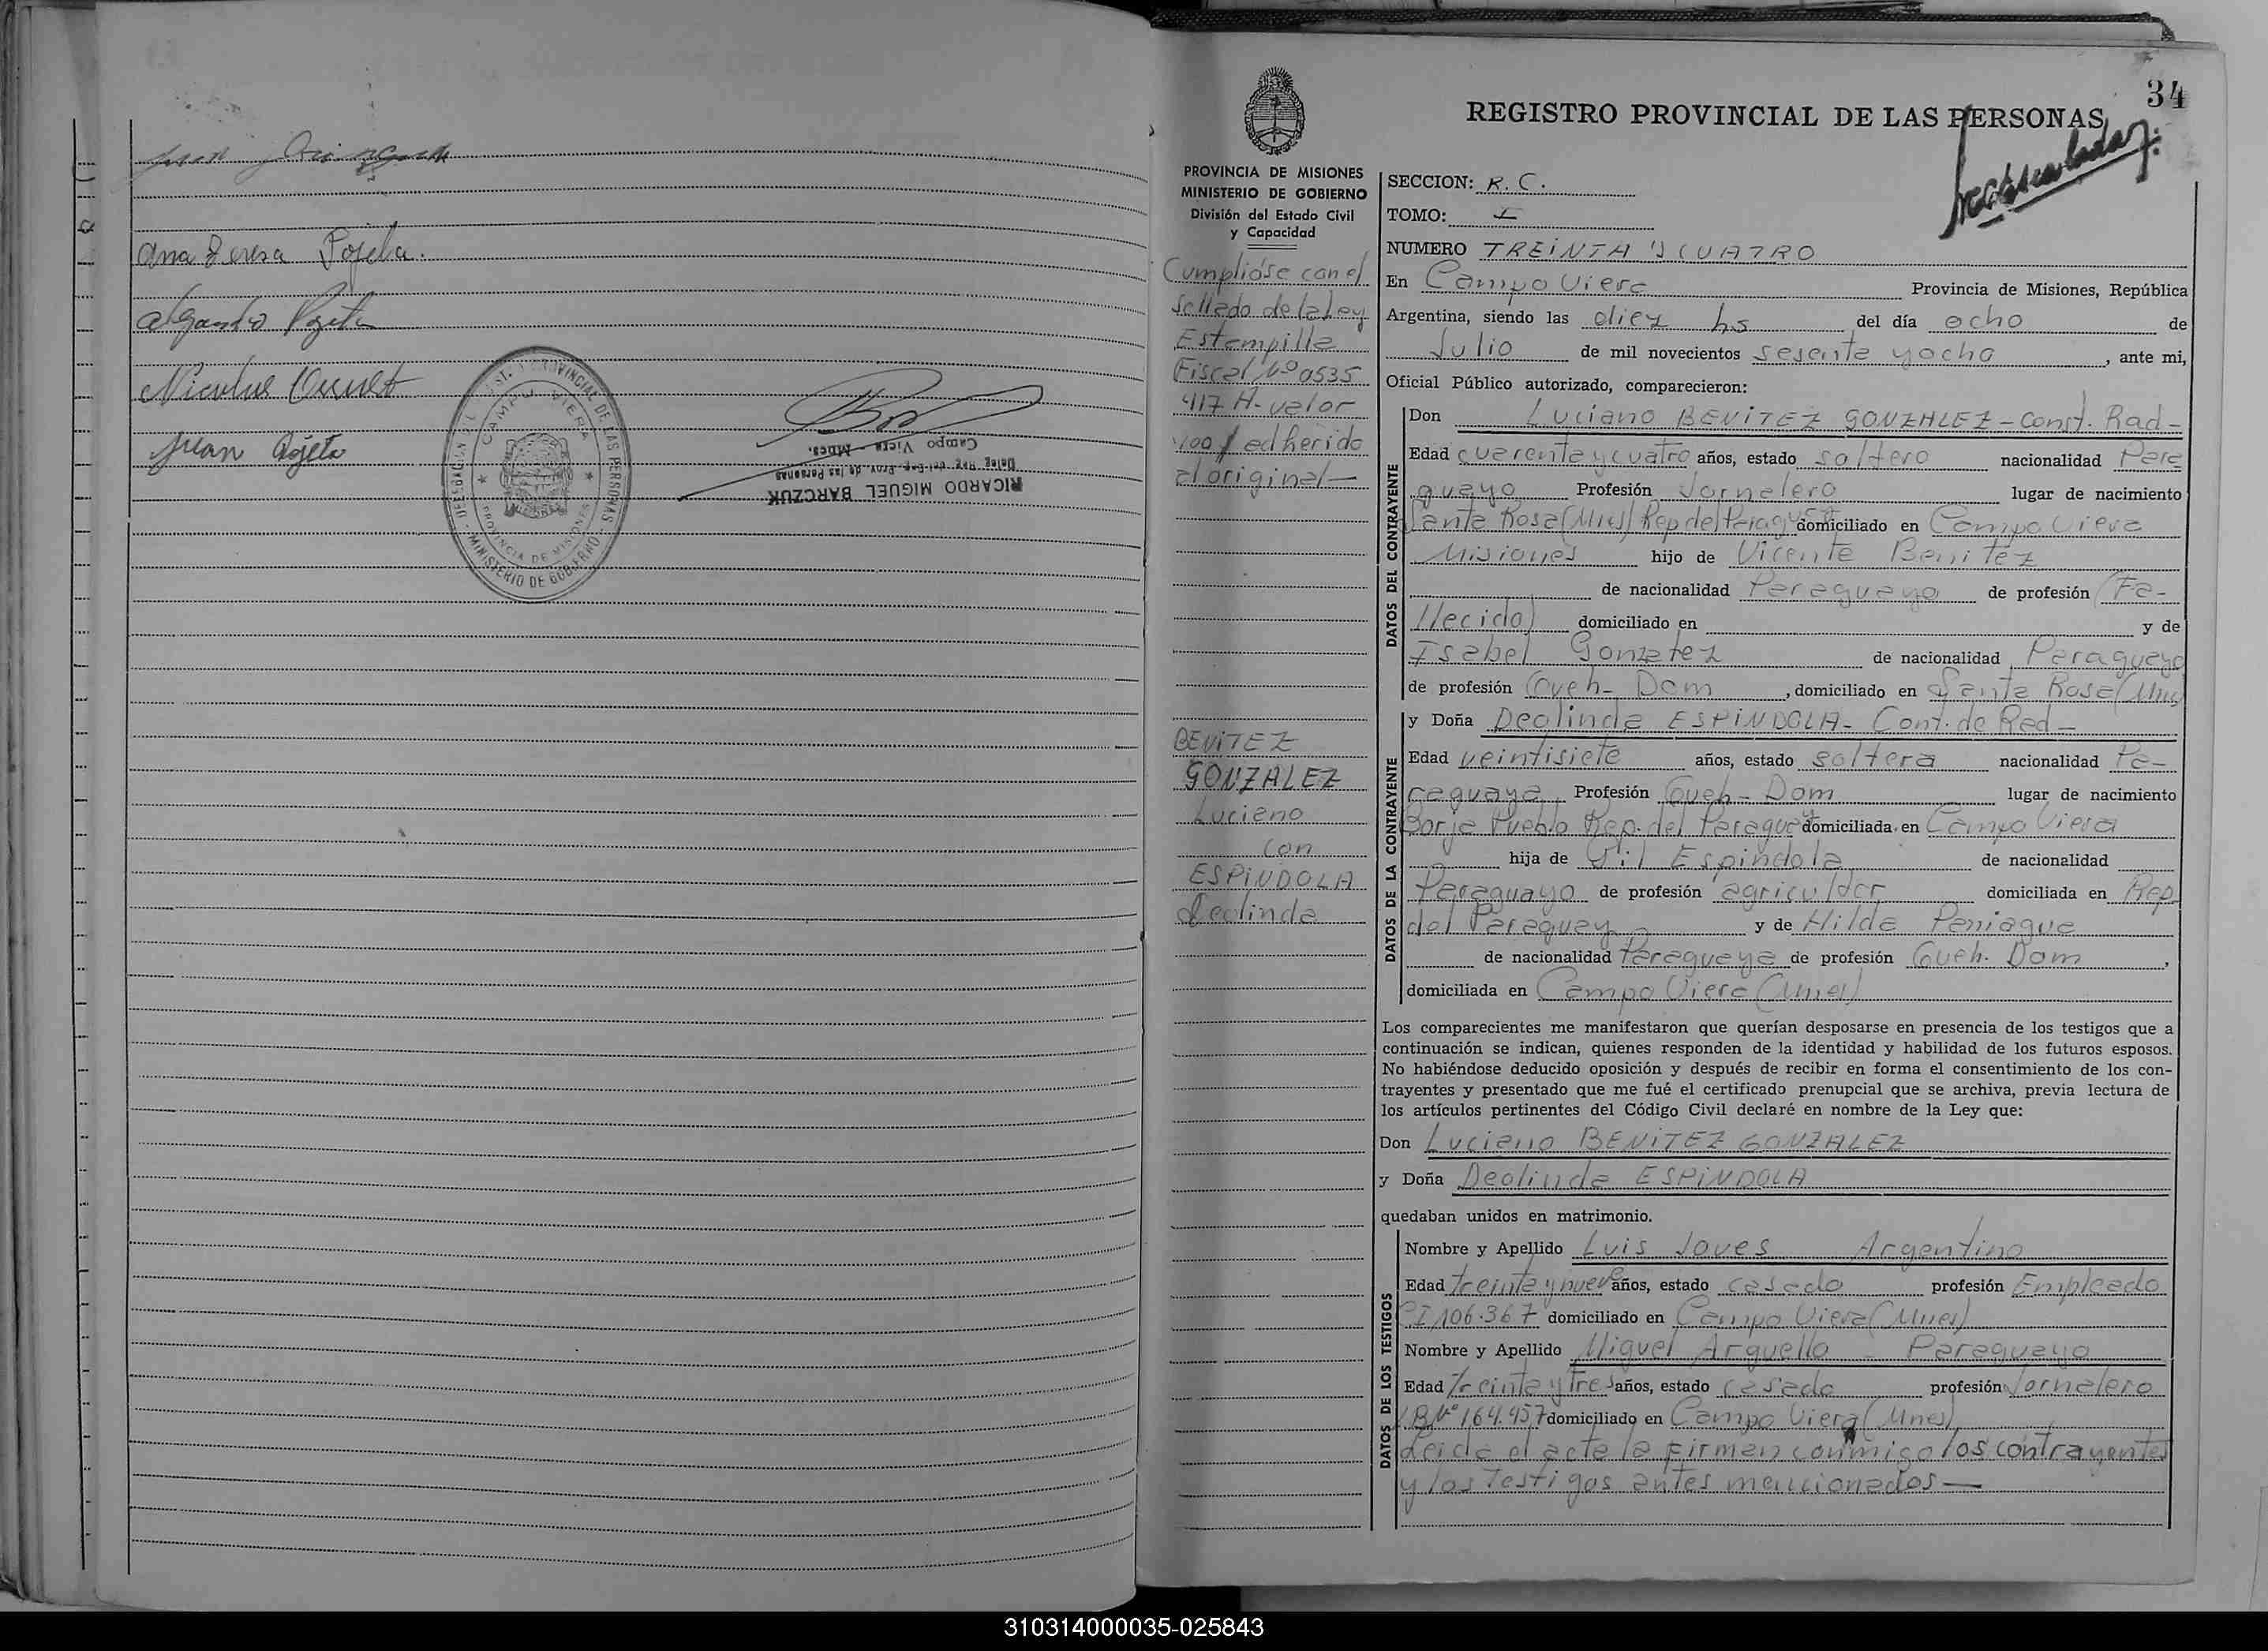 Ana Teresa Pojeta.
Nicolas
Juan Pojeta
DELEGACION
PROVINCIAL DE LAS PERSONAS
CAMPO VIERA
PROVINCIA DE MISIONES
MINISTERIO DE GOBIERNO
RICARDO MIGUEL BARCZUK
Deleg. Reg. del Reg. Prov. de las Personas
Campo Viera - Mnes.
34
REGISTRO PROVINCIAL DE LAS PERSONAS
PROVINCIA DE MISIONES
MINISTERIO DE GOBIERNO
División del Estado Civil
y Capacidad
Cumplióse con el
sellado de la Ley
Estampilla
Fiscal Nº 0535
417 H- valor
100 adherido
al original—
BENITEZ
GONZALEZ
Luciano
con
ESPINDOLA
Deolinda
SECCION: R. C.
TOMO: I
NUMERO TREINTA Y CUATRO
En Campo Viera Provincia de Misiones, República
Argentina, siendo las diez hs del día ocho de
Julio de mil novecientos sesenta y ocho, ante mi,
Oficial Público autorizado, comparecieron:
DATOS DEL CONTRAYENTE
Don Luciano BENITEZ GONZALEZ - Const. Rad -
Edad cuarenta y cuatro años, estado soltero nacionalidad Para
guayo Profesión Jornalero lugar de nacimiento
Santa Rosa (Mnes) Rep del Paraguay domiciliado en Campo Viera
Misiones hijo de Vicente Benitez
de nacionalidad Paraguayo de profesión (Fa-
llecido) domiciliado en y de
Isabel Gonzalez de nacionalidad Paraguaya
de profesión Queh- Dom, domiciliado en Santa Rosa (Mnes)
DATOS DE LA CONTRAYENTE
y Doña Deolinda ESPINDOLA - Cont. de Rad -
Edad veintisiete años, estado soltera nacionalidad Pa-
raguaya Profesión Queh- Dom lugar de nacimiento
Borja Pueblo Rep. del Paraguay domiciliada en Campo Viera
hija de Gil Espindola de nacionalidad
Paraguayo de profesión agricultor domiciliada en Rep
del Paraguay y de Hilda Paniague
de nacionalidad Paraguaya de profesión Queh. Dom,
domiciliada en Campo Viera (Mnes)
Los comparecientes me manifestaron que querían desposarse en presencia de los testigos que a
continuación se indican, quienes responden de la identidad y habilidad de los futuros esposos.
No habiéndose deducido oposición y después de recibir en forma el consentimiento de los con-
trayentes y presentado que me fué el certificado prenupcial que se archiva, previa lectura de
los artículos pertinentes del Código Civil declaré en nombre de la Ley que:
Don Luciano BENITEZ GONZALEZ
y Doña Deolinda ESPINDOLA
quedaban unidos en matrimonio.
DATOS DE LOS TESTIGOS
Nombre y Apellido Luis Joves Argentino
Edad treinta y nueve años, estado casado profesión Empleado
CI 106.367 domiciliado en Campo Viera (Mnes)
Nombre y Apellido Miguel Arguello - Paraguayo
Edad treinta y tres años, estado casado profesión Jornalero
Nº 164.957 domiciliado en Campo Viera (Mnes)
Leida el acta la firman conmigo los contrayentes
y los testigos antes mencionados—
310314000035-025843